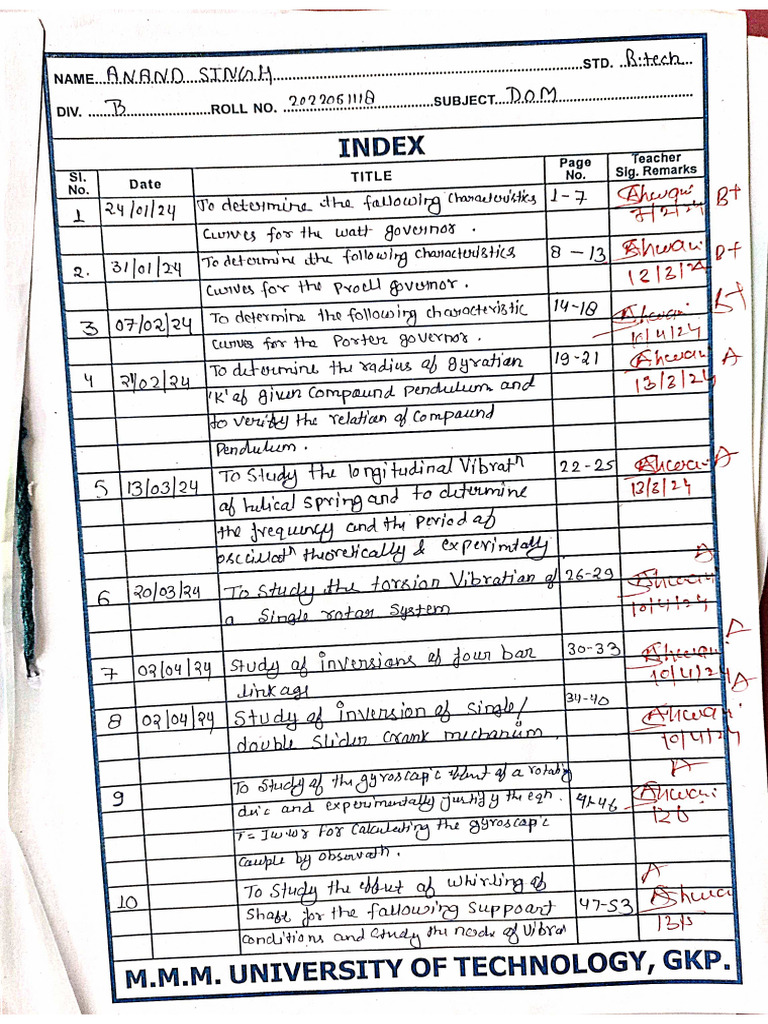 NAME. ANAND SINGH STD. B.tech
DIV. B ROLL NO. 2022061118 SUBJECT. DOM
INDEX
Sl. No. Date TITLE Page No. Teacher Sig. Remarks
1 24/01/24 To determine the following Characteristics 1-7 Ashwani B+
Curves for the watt governor. 7/2/24
2. 31/01/24 To determine the following characteristics 8-13 Ashwani B+
Curves for the Proell governor. 13/3/24
3 07/02/24 To determine the following characteristic 14-18 Ashwani B+
curves for the Porter governor. 10/4/24
4 21/02/24 To determine the radius of gyration 19-21 Ashwani A
'K' of given Compound Pendulum and 13/3/24
to verify the relation of Compound
Pendulum.
5 13/03/24 To Study the longitudinal Vibratn 22-25 Ashwani A
of helical spring and to determine 13/3/24
the frequency and the period of
oscillatn theoretically & experimtally
6 20/03/24 To Study the torsion Vibration of 26-29 Ashwani A
a Single rotar System 10/4/24
7 02/04/24 Study of inversions of four bar 30-33 Ashwani A
linkage 10/4/24
8 02/04/24 Study of inversion of Single/ 34-40 Ashwani A
double Slider Crank mechanism. 10/4/24
9 To Study of the gyroscopic effect of a rotating A
disc and experimentally justify the eqn. 41-46 Ashwani
for Calculating the gyroscopic
Couple by observatn.
10 To Study the effect of whirling of A
Shaft for the following Suppoart 47-53 Ashwani
conditions and Study the node of Vibrat
M.M.M. UNIVERSITY OF TECHNOLOGY, GKP.